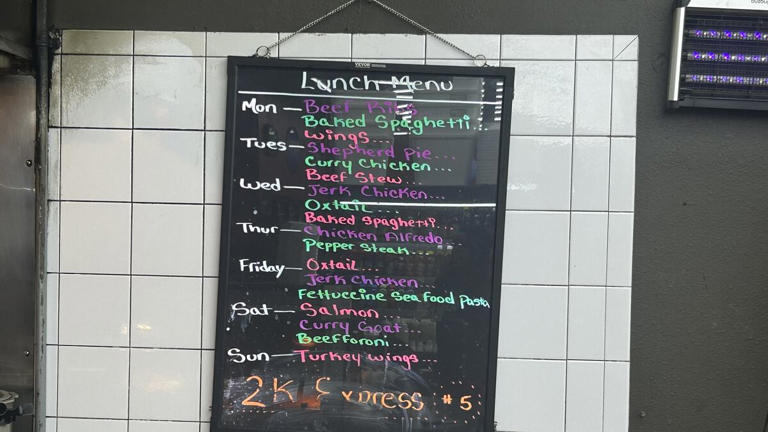 Lunch Menu
Mon — Beef Ribs
Baked Spaghetti...
Wings...
Tues — Shepherd Pie...
Curry Chicken...
Beef Stew...
Wed — Jerk Chicken...
Oxtail...
Baked Spaghetti...
Thur — Chicken Alfredo
Pepper Steak...
Friday — Oxtail...
Jerk Chicken...
Fettuccine Sea food Pasta
Sat — Salmon...
Curry Goat...
Beefforoni...
Sun — Turkey wings...
2K Express #5